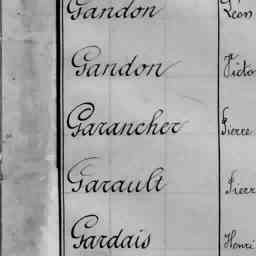 Gandon Léon
Gandon Victo
Garancher Pierre
Garault Pierr
Gardais Henri